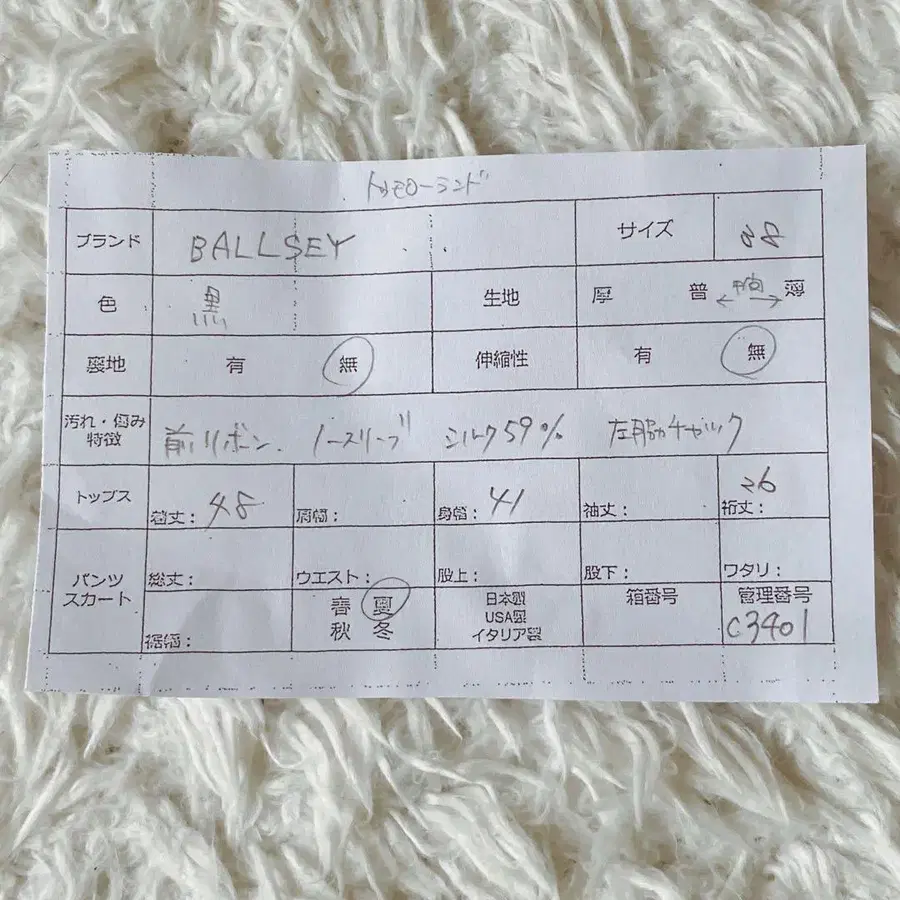 トゥモローランド
ブランド BALLSEY サイズ 38
色 黒 生地 厚 普 ←→ 薄
裏地 有 無 伸縮性 有 無
汚れ・傷み
特徴 前リボン. ノースリーブ シルク59% 左脇チャック
トップス 着丈: 48 肩幅: 身幅: 41 袖丈: 裄丈: 26
パンツ
スカート 総丈: ウエスト: 股上: 股下: ワタリ:
裾幅: 春 夏
秋 冬
日本製
USA製
イタリア製
箱番号
管理番号
C3401